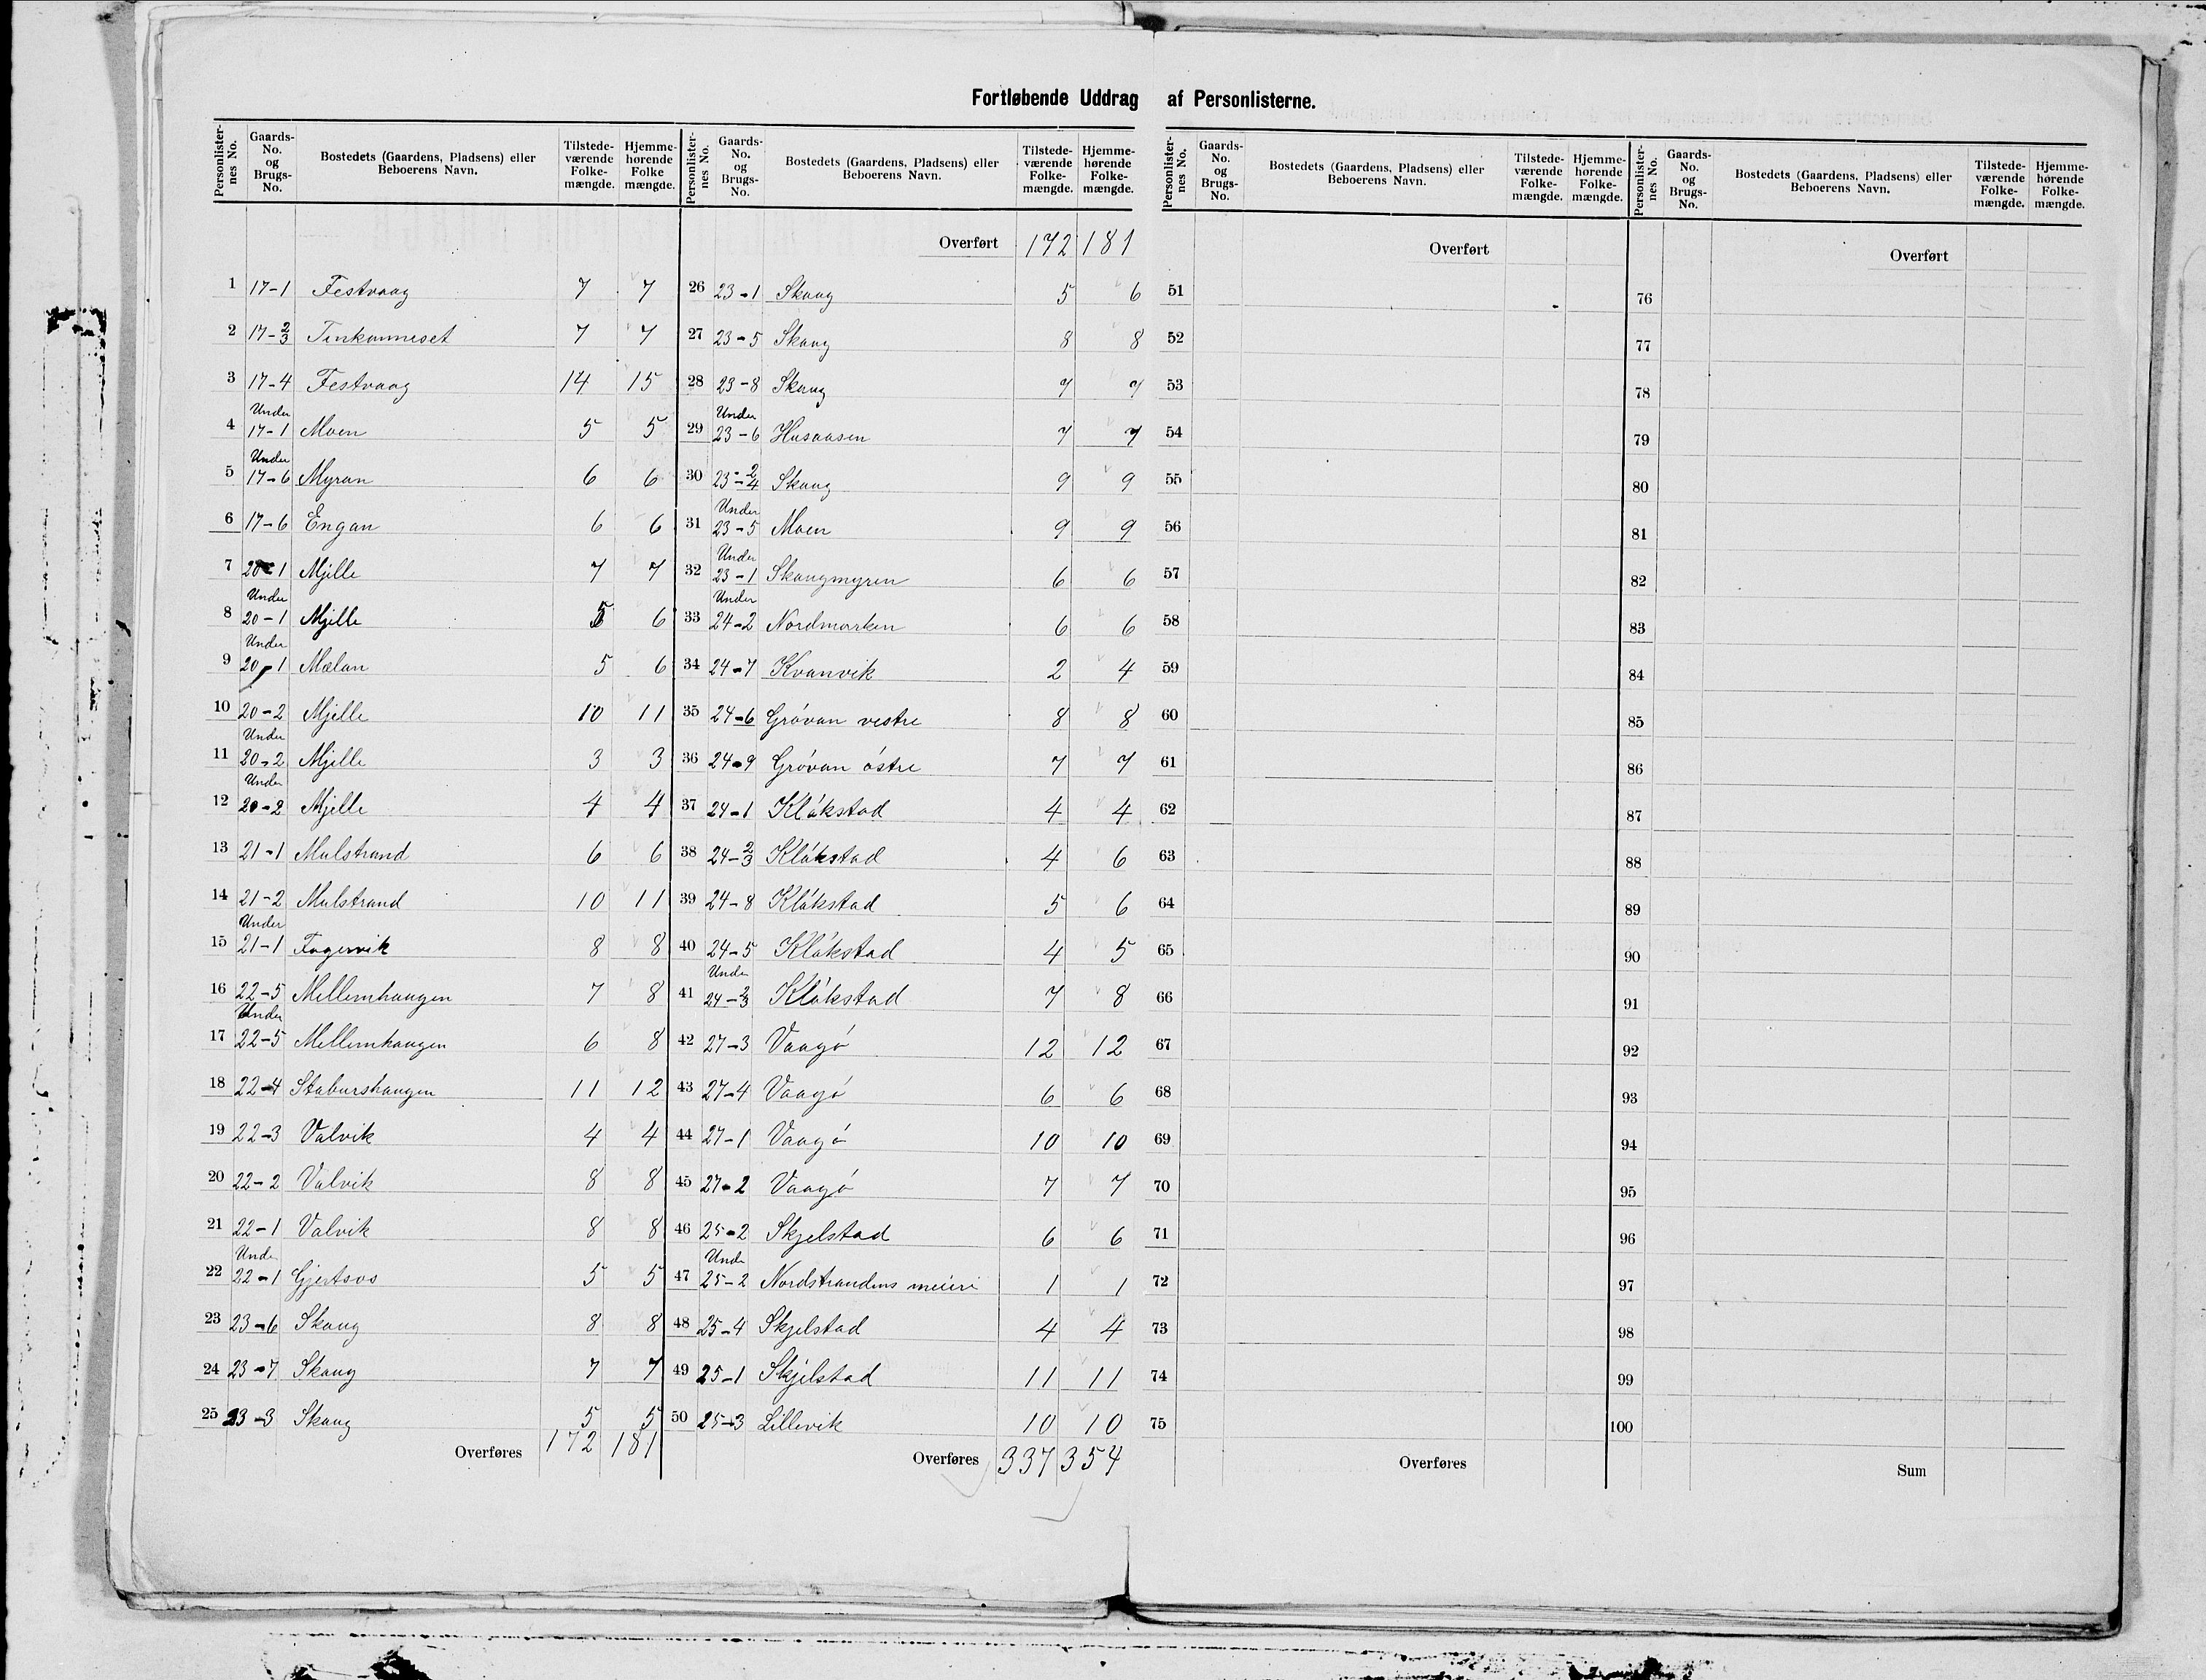 Fortløbende Uddrag af Personlisterne.
Personlister-nes No. Gaards-No. og Brugs-No. Bostedets (Gaardens, Pladsens) eller Beboerens Navn. Tilstede-værende Folke-mængde. Hjemme-hørende Folke mængde.
1 17-1 Festvaag 7 7
2 17-2/3 7 7
3 17-4 Festvaag 14 15
4 Under 17-1 Moen 5 5
5 Under 17-6 Myran 6 6
6 17-6 Engan 6 6
7 20-1 Mjelle 7 7
8 Under 20-1 Mjelle 5 6
9 Under 20-1 Mælan 5 6
10 20-2 Mjelle 10 11
11 Under 20-2 Mjelle 3 3
12 Under 20-2 Mjelle 4 4
13 21-1 Mulstrand 6 6
14 21-2 Mulstrand 10 11
15 Under 21-1 Fagervik 8 8
16 22-5 Mellemhaugen 7 8
17 Under 22-5 Mellemhaugen 6 8
18 22-4 Staburshaugen 11 12
19 22-3 Valvik 4 4
20 22-2 Valvik 8 8
21 22-1 Valvik 8 8
22 Under 22-1 Gjertsos 5 5
23 23-6 Skaug 8 8
24 23-7 Skaug 7 7
25 23-3 Skaug 5 5
Overføres 172 181
Personlister-nes No. Gaards-No. og Brugs-No. Bostedets (Gaardens, Pladsens) eller Beboerens Navn. Tilstede-værende Folke-mængde. Hjemme-hørende Folke-mængde.
Overført 172 181
26 23-1 Skaug 5 6
27 23-5 Skaug 8 8
28 23-8 Skaug 7 7
29 Under 23-6 Husaasen 7 7
30 23-2/4 Skaug 9 9
31 Under 23-5 Moen 9 9
32 Under 23-1 Skaugmyren 6 6
33 Under 24-2 Nordmarken 6 6
34 24-7 Kvanvik 2 4
35 24-6 Gróvan vestre 8 8
36 24-9 Gróvan óstre 7 7
37 24-1 Klókstad 4 4
38 24-2/3 Klókstad 4 6
39 24-8 Klókstad 5 6
40 24-5 Klókstad 4 5
41 Under 24-2/3 Klókstad 7 8
42 27-3 Vaagó 12 12
43 27-4 Vaagó 6 6
44 27-1 Vaagó 10 10
45 27-2 Vaagó 7 7
46 25-2 Skjelstad 6 6
47 Under 25-2 Nordstrandens meieri 1 1
48 25-4 Skjelstad 4 4
49 25-1 Skjelstad 11 11
50 25-3 Lillevik 10 10
Overføres 337 354
Personlister-nes No. Gaards-No. og Brugs-No. Bostedets (Gaardens, Pladsens) eller Beboerens Navn. Tilstede-værende Folke-mængde. Hjemme-hørende Folke-mængde.
Overført
51
52
53
54
55
56
57
58
59
60
61
62
63
64
65
66
67
68
69
70
71
72
73
74
75
Overføres
Personlister-nes No. Gaards-No. og Brugs-No. Bostedets (Gaardens, Pladsens) eller Beboerens Navn. Tilstede-værende Folke-mængde. Hjemme-hørende Folke-mængde.
Overført
76
77
78
79
80
81
82
83
84
85
86
87
88
89
90
91
92
93
94
95
96
97
98
99
100
Sum